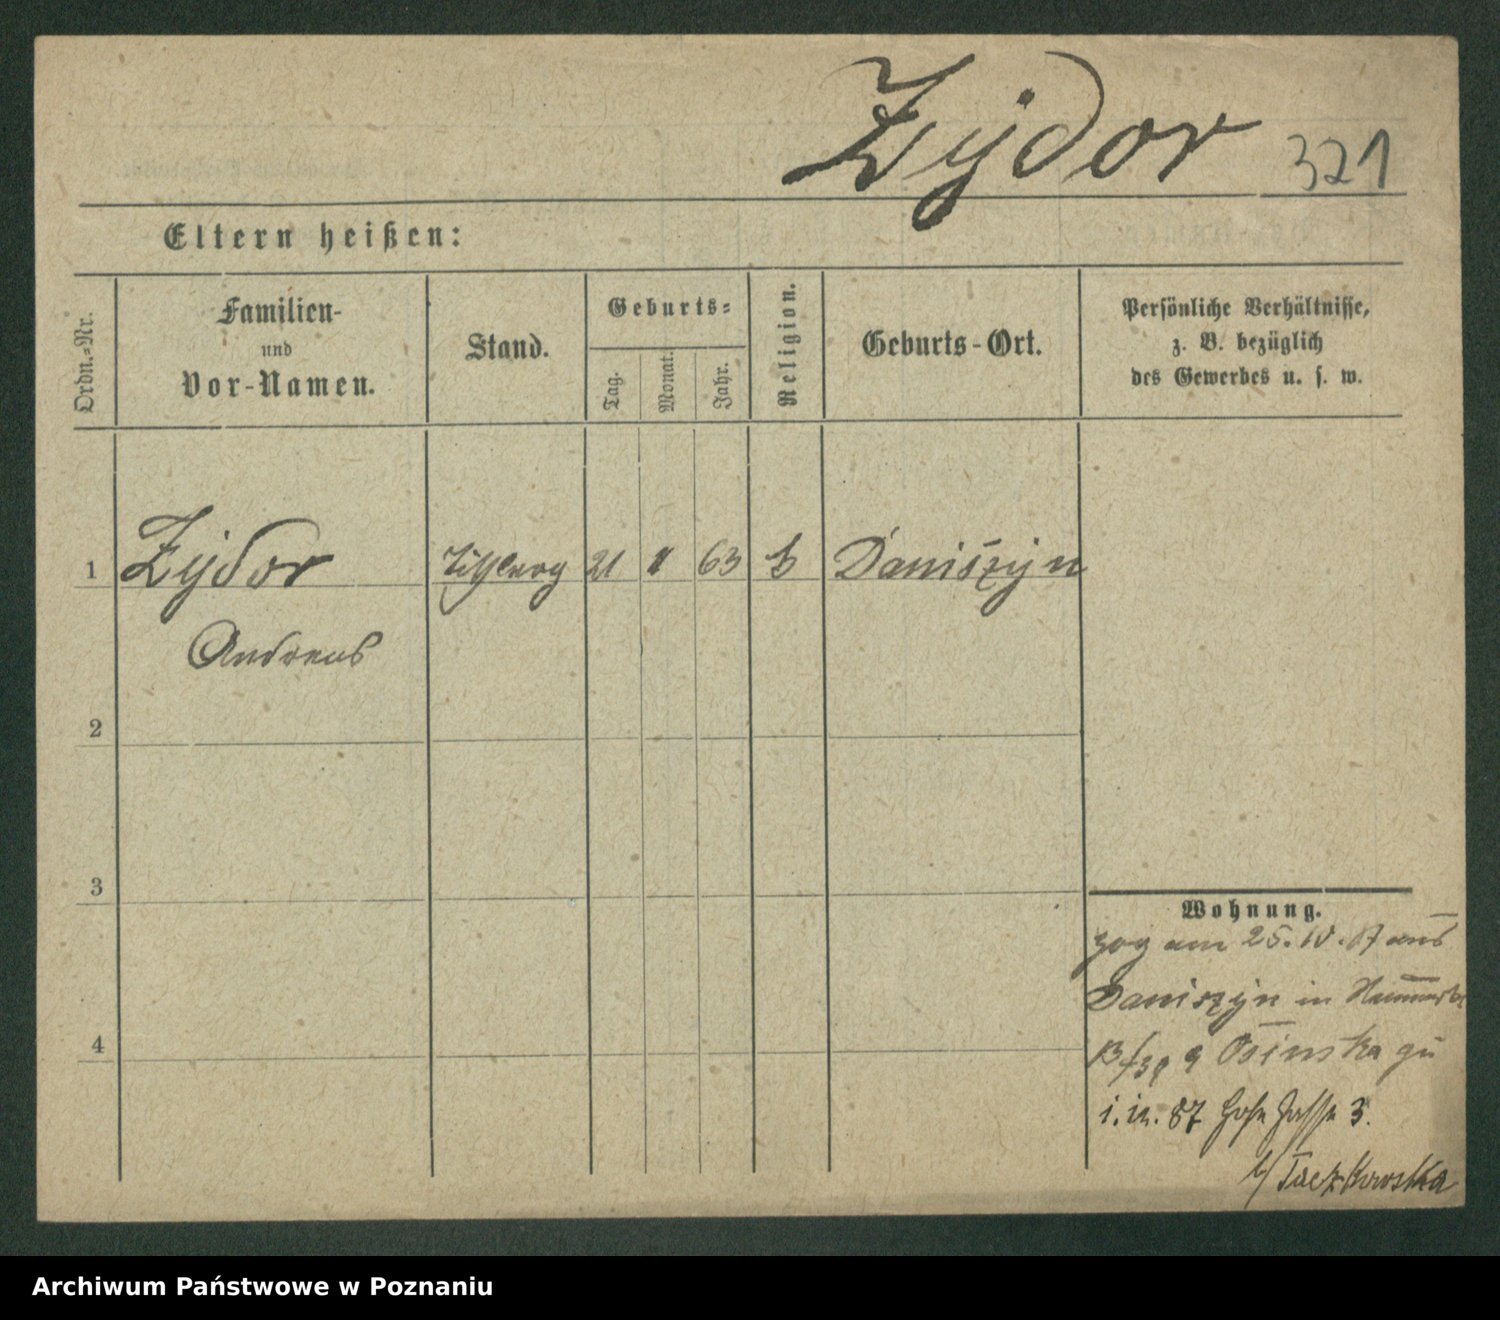 Zydor 321
Eltern heißen:
Ordn.-Nr.
Familien-
und
Vor-Namen.
Stand.
Geburts-
Tag.
Monat.
Jahr.
Religion.
Geburts-Ort.
Persönliche Verhältnisse,
z. B. bezüglich
des Gewerbes u. s. w.
1 Zydor 21 63 Daniszyn
Andreas
2
3
4
Wohnung.
zog am 25. 10. 87 aus
Daniszyn in
Osinska zu
87 Hohe Gasse 3.
b/ Taczkowska
Archiwum Państwowe w Poznaniu